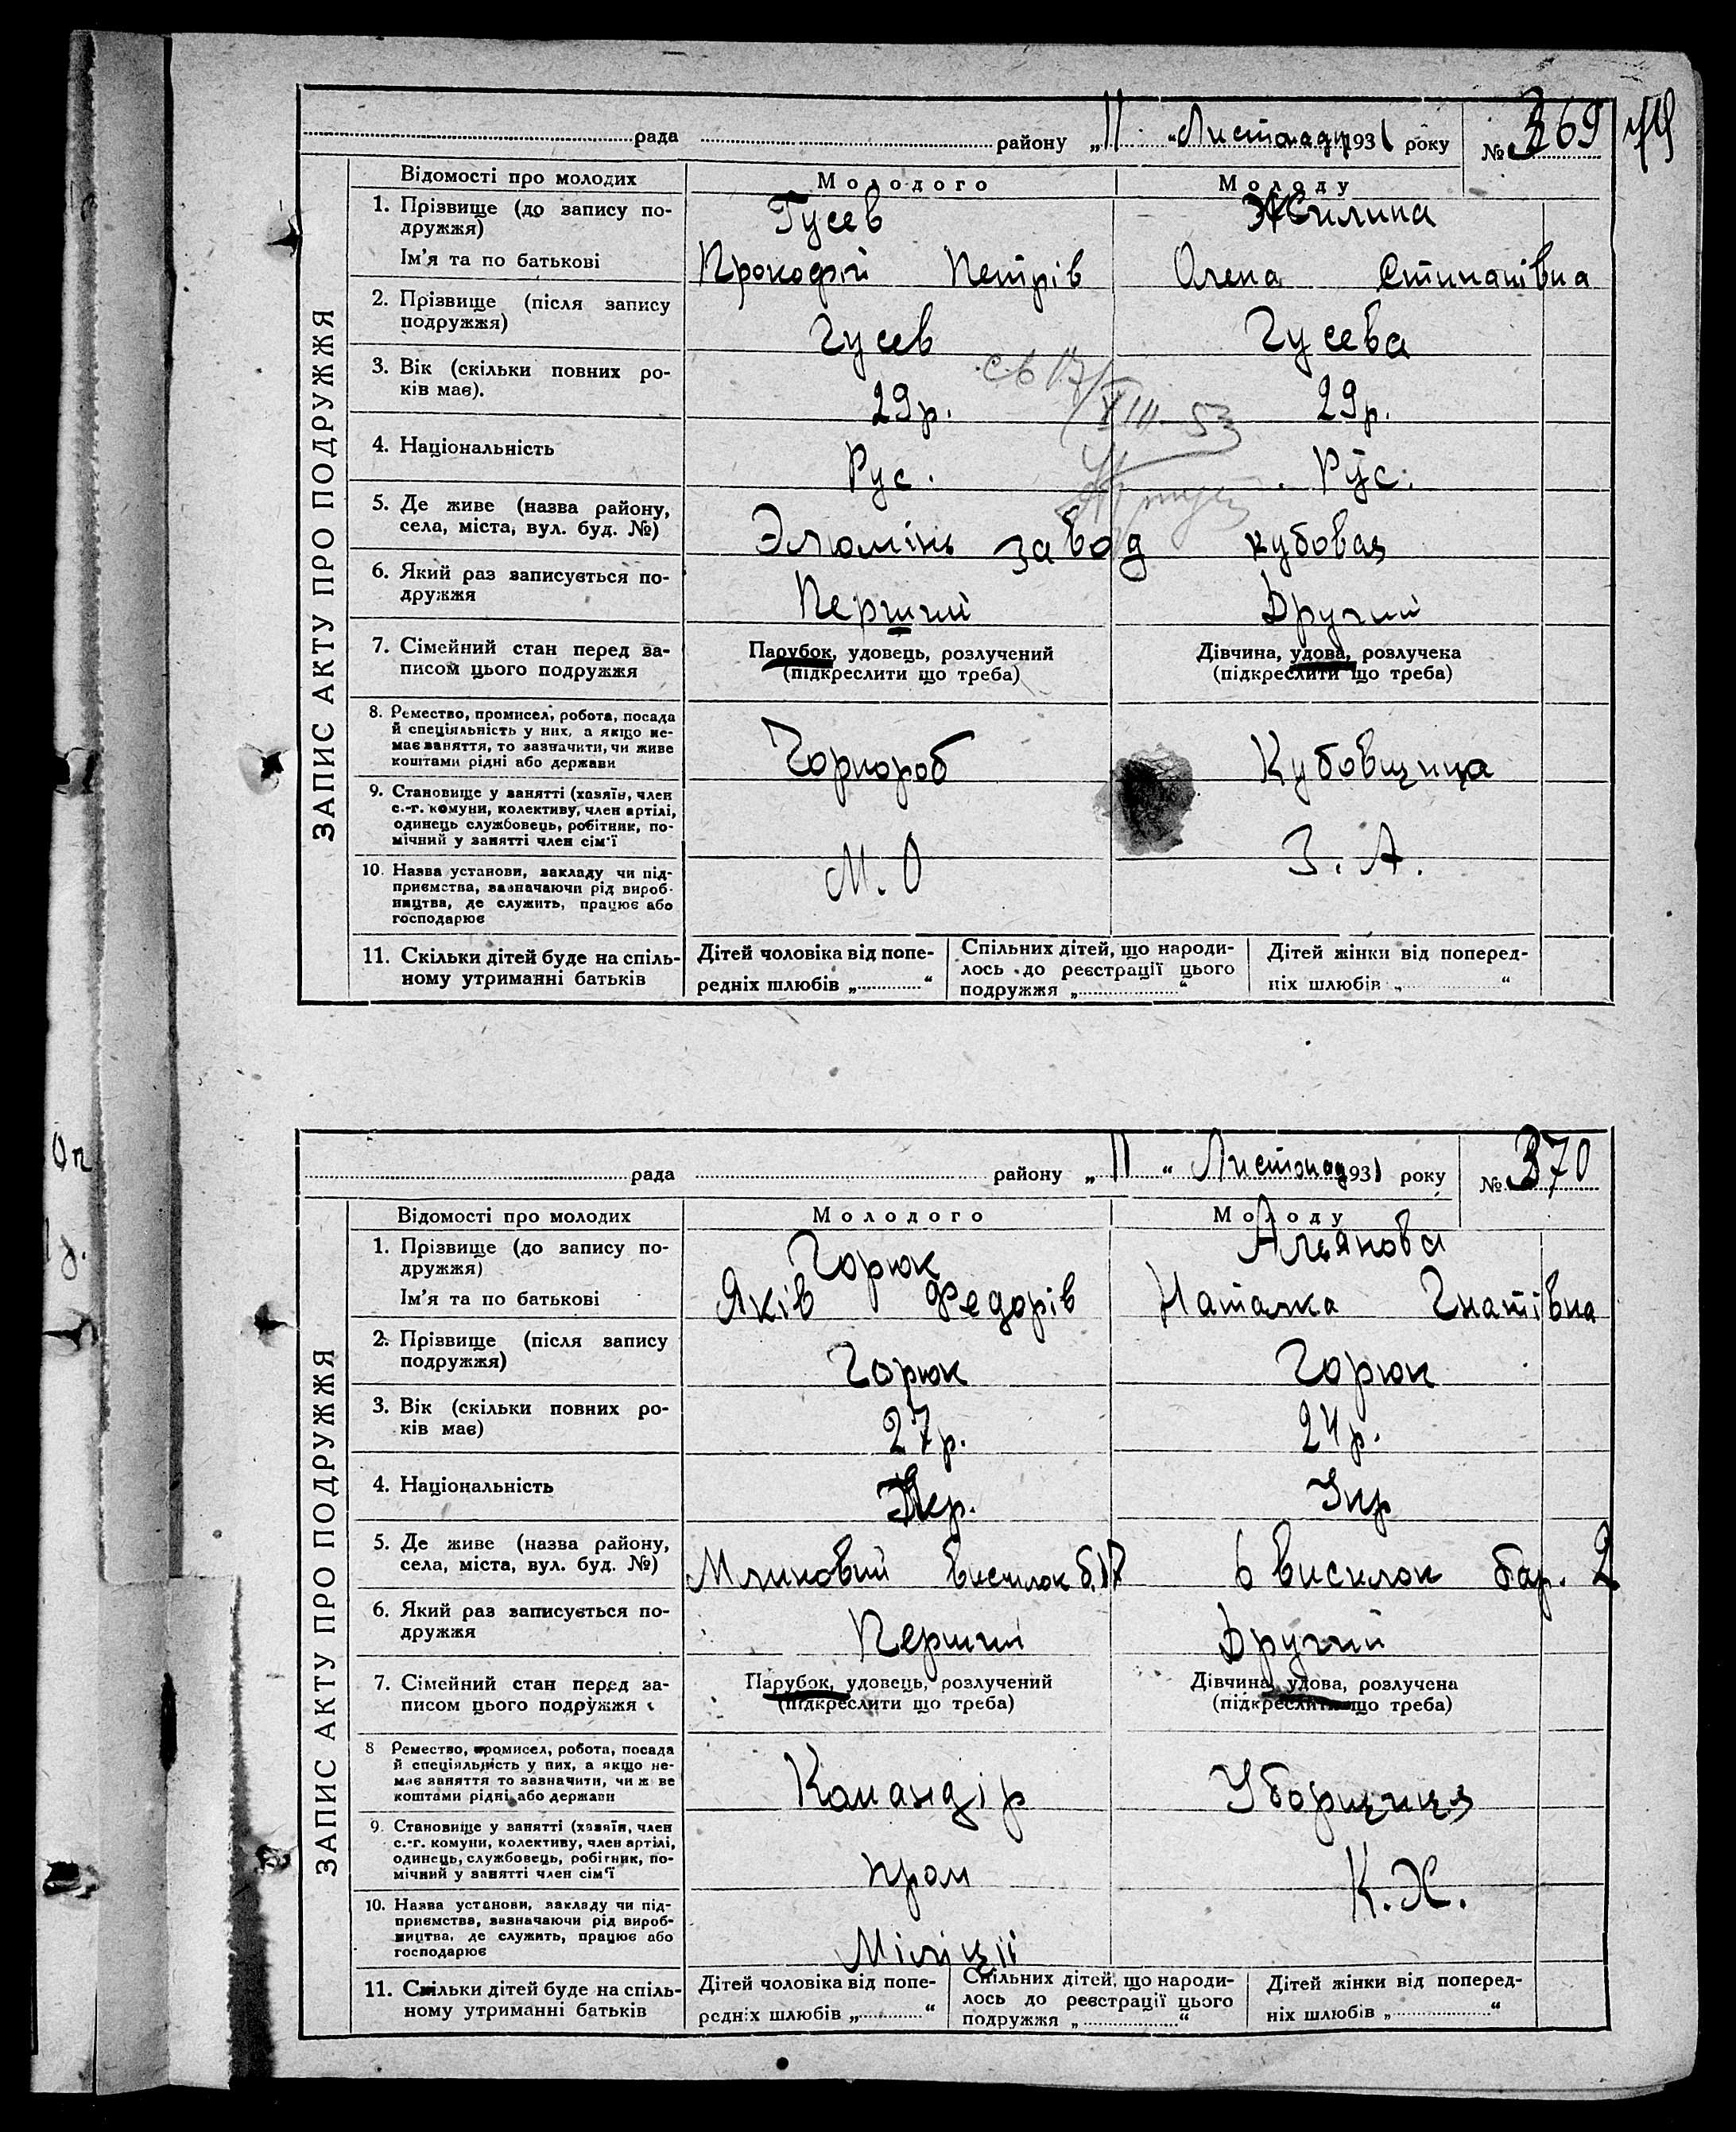 рада району „11“ Листопаду 1931 року № 369
Відомості про молодих Молодого Молоду
ЗАПИС АКТУ ПРО ПОДРУЖЖЯ
1. Прізвище (до запису по- Гусев Жилина
дружжя)
Ім'я та по батькові Прокофій Петрів Олена Стипанівна
2. Прізвище (після запису Гусев Гусева
подружжя)
3. Вік (скільки повних ро- 29р. 29р.
ків має).
св 17/VIII 53
4. Національність Рус. Рус.
5. Де живе (назва району, Элюмінь завод кубовая
села, міста, вул. буд. №)
6. Який раз записується по- Перший Другий
дружжя
7. Сімейний стан перед за- Парубок, удовець, розлучений Дівчина, удова, розлучека
писом цього подружжя (підкреслити що треба) (підкреслити що треба)
8. Ремество, промисел, робота, посада
й спеціяльність у них, а якщо не-
має заняття, то зазначити, чи живе Чорнороб Кубовщица
коштами рідні або держави
9. Становище у занятті (хазяїн, член
с.-г. комуни, колективу, член артілі,
одинець службовець, робітник, по-
мічний у занятті член сім'ї
10. Назва установи, закладу чи під- М. О З. А.
приємства, зазначаючи рід вироб-
ництва, де служить, працює або
господарює
11. Скільки дітей буде на спіль- Дітей чоловіка від попе- Спільних дітей, що народи- Дітей жінки від поперед-
ному утриманні батьків редніх шлюбів „ “ лось до реєстрації цього ніх шлюбів „ “
подружжя „ “
рада району „11“ Листопад 1931 року № 370
Відомості про молодих Молодого Молоду
ЗАПИС АКТУ ПРО ПОДРУЖЖЯ
1. Прізвище (до запису по- Горюк Альянова
дружжя)
Ім'я та по батькові Яків Федорів Наталка Гнатівна
2. Прізвище (після запису Горюк Горюк
подружжя)
3. Вік (скільки повних ро- 27р. 24р.
ків має)
4. Національність Укр
5. Де живе (назва району, Млиновий висилок б.17 6 висилок бар. 2
села, міста, вул. буд. №)
6. Який раз записується по- Перший Другий
дружжя
7. Сімейний стан перед за- Парубок, удовець, розлучений Дівчина, удова, розлучена
писом цього подружжя (підкреслити що треба) (підкреслити що треба)
8 Ремество, промисел, робота, посада
й спеціяльність у них, а якщо не-
має заняття то зазначити, чи ж ве Командір Уборщиця
коштами рідні або держави
9. Становище у занятті (хазяїн, член
с.-г. комуни, колективу, член артілі,
одинець, службовець, робітник, по- пром К. Х.
мічний у занятті член сім'ї
10. Назва установи, закладу чи під-
приємства, зазначаючи рід вироб-
ництва, де служить, працює або
господарює Міліції
11. Скільки дітей буде на спіль- Дітей чоловіка від попе- Спільних дітей, що народи- Дітей жінки від поперед-
ному утриманні батьків редніх шлюбів „ “ лось до реєстрації цього ніх шлюбів „ “
подружжя „ “